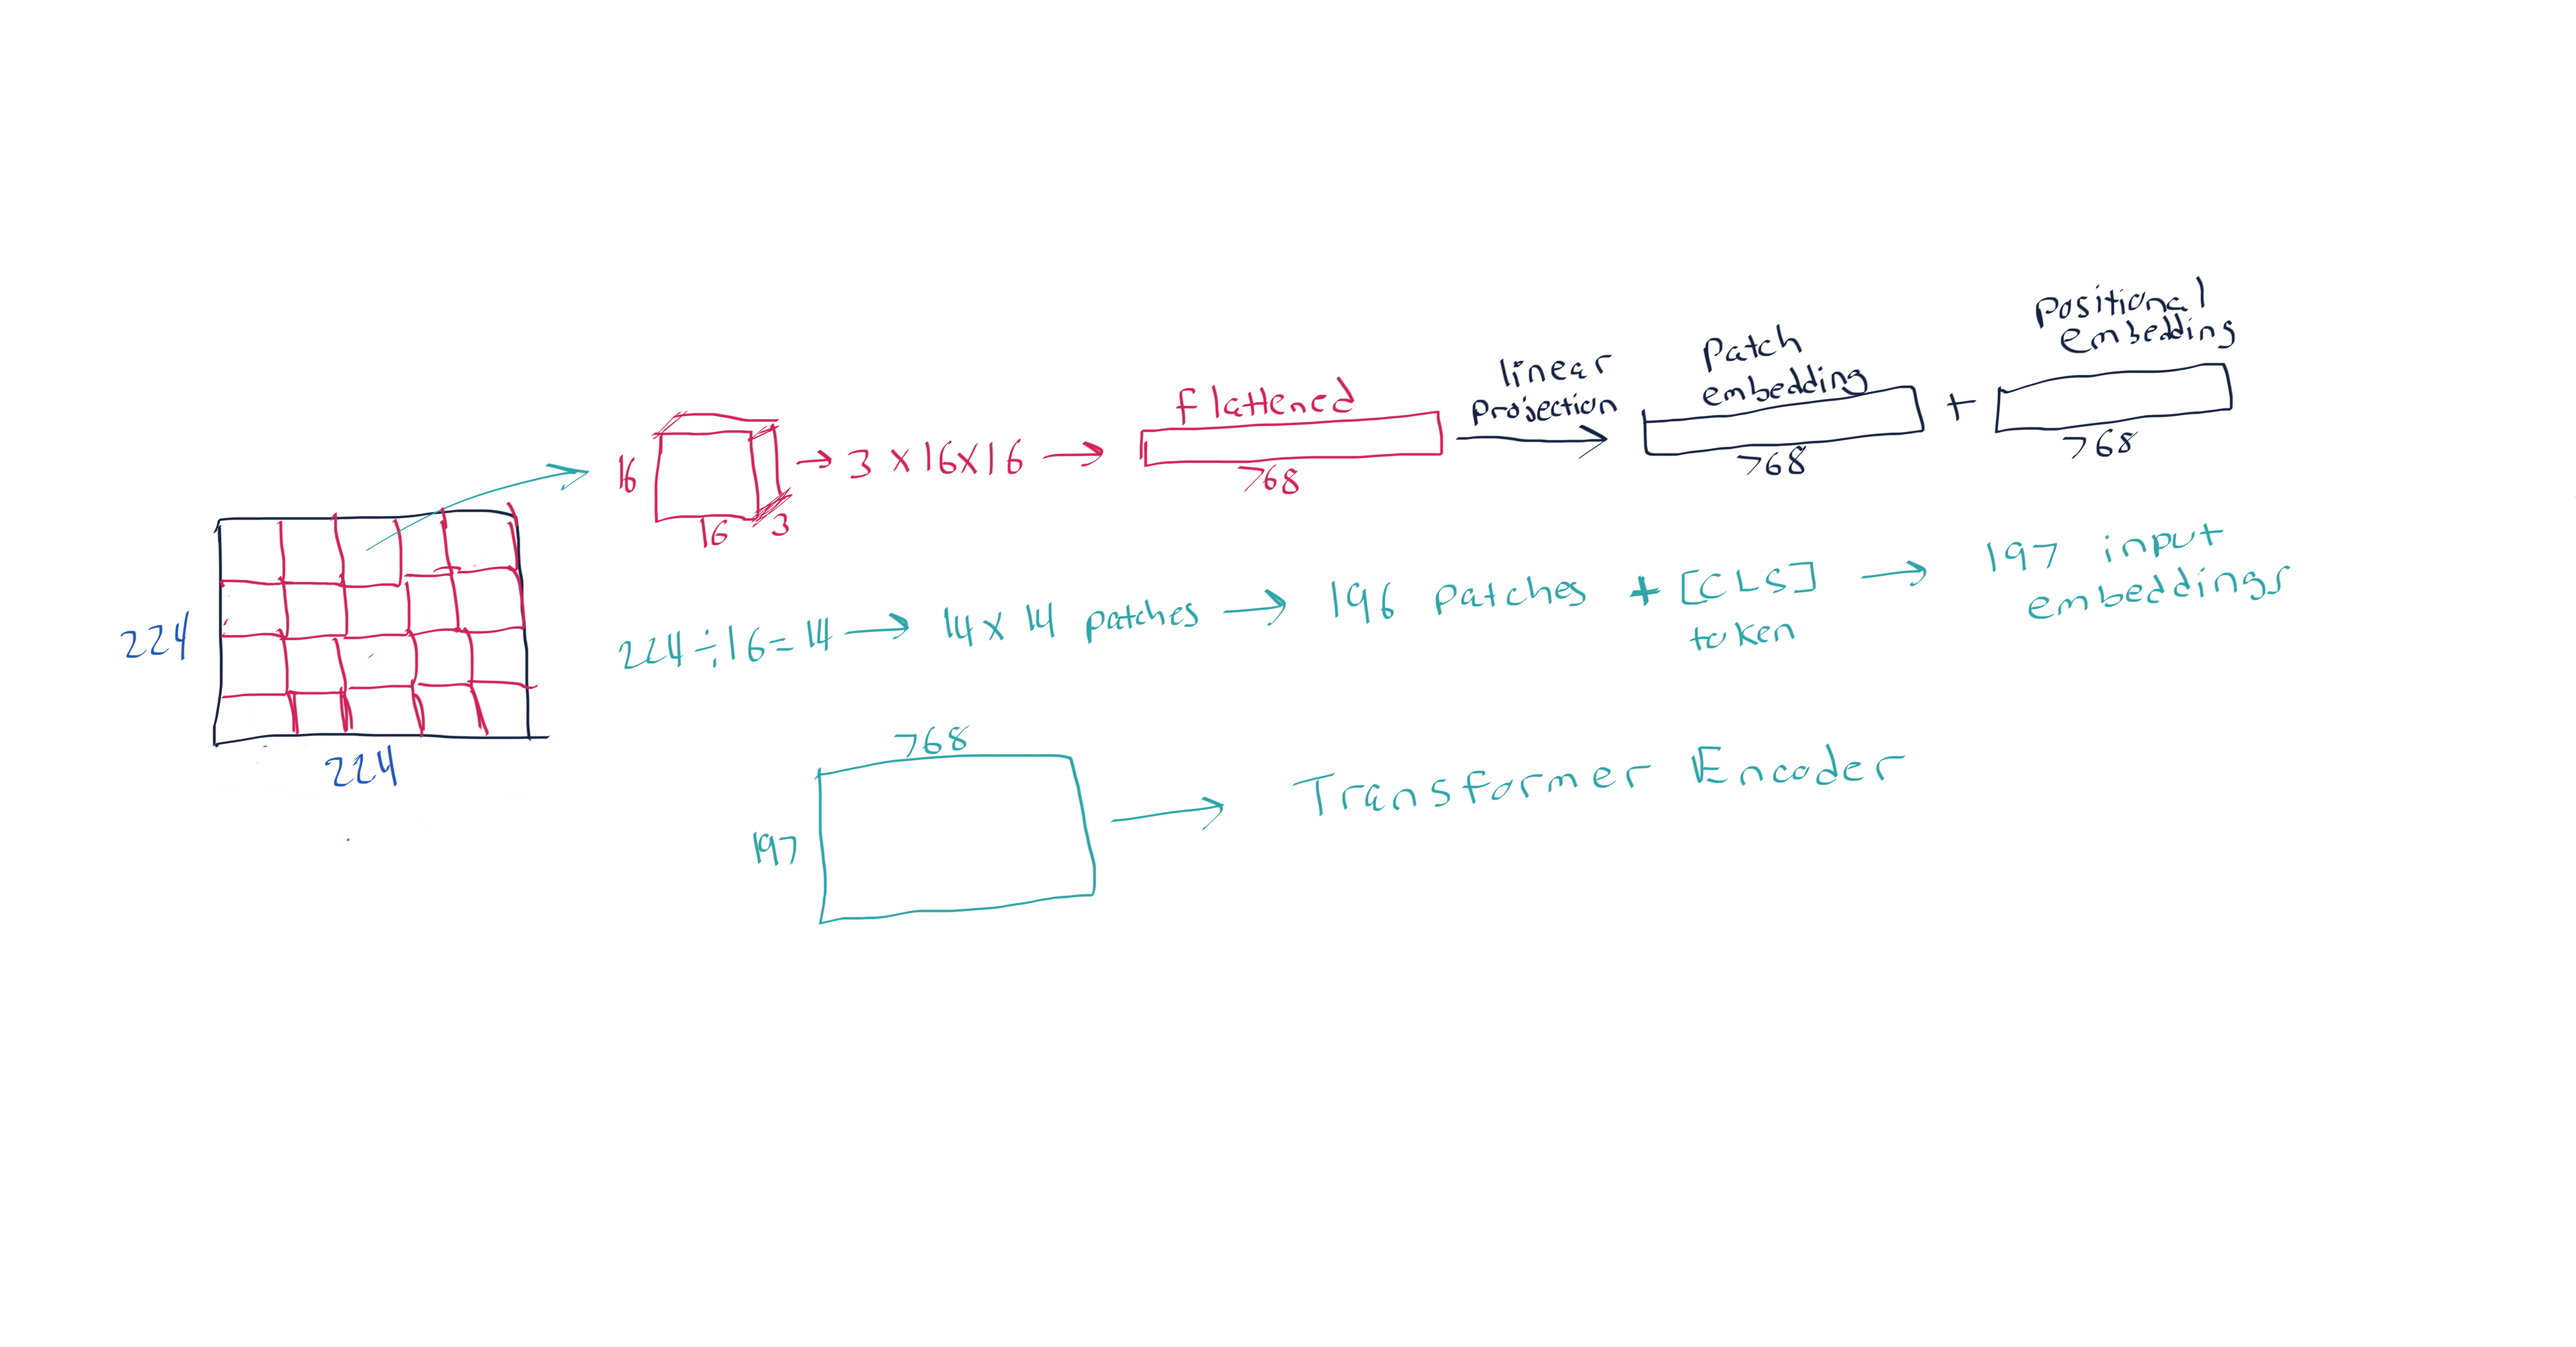 224
224
16
16
3
→ 3 x 16 x 16 →
Flattened
768
linear
projection
Patch
embedding
768
+
Positional
embedding
768
224 ÷ 16 = 14 → 14 x 14 patches → 196 Patches + [CLS]
token
→ 197 input
embeddings
768
197
→ Transformer Encoder